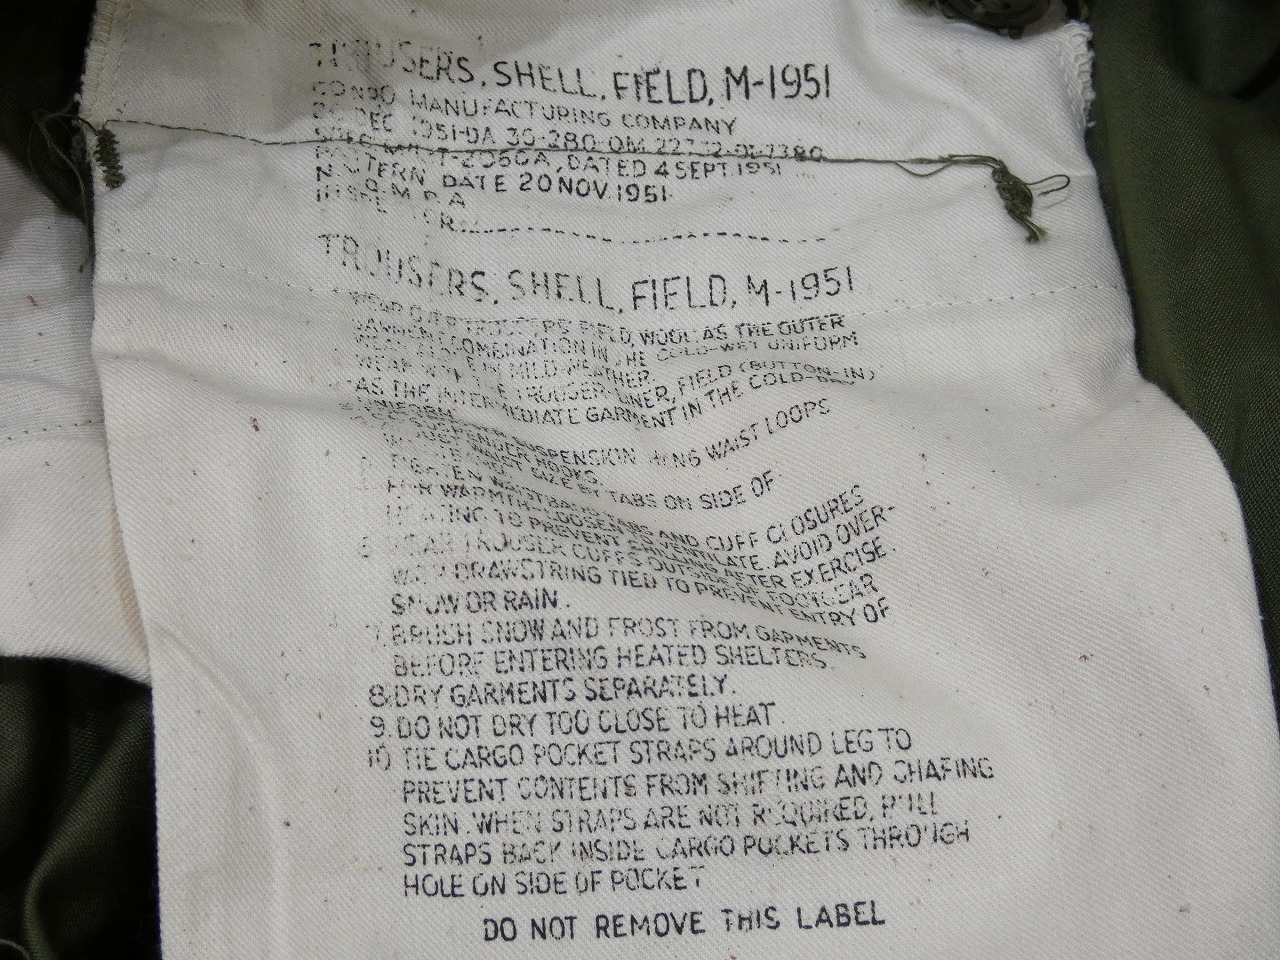 TROUSERS, SHELL, FIELD, M-1951
MANUFACTURING COMPANY
DEC 1951-DA 30-280-QM
DATED 4 SEPT. 1951
PATTERN DATE 20 NOV. 1951
TROUSERS, SHELL, FIELD, M-1951
WEAR OVER TROUSERS, FIELD, WOOL AS THE OUTER
GARMENT COMBINATION IN THE COLD-WET UNIFORM
IN MILD WEATHER.
WEAR WITH THE TROUSER LINER, FIELD (BUTTON-IN)
AS THE INTERMEDIATE GARMENT IN THE COLD-DRY
SUSPENDERS IN HANG WAIST LOOPS
SUSPENDER HOOKS.
WAIST SIZE BY TABS ON SIDE OF
TIGHTEN WAISTBAND TABS AND CUFF CLOSURES
FOR WARMTH-LOOSEN TO VENTILATE. AVOID OVER-
HEATING TO PREVENT CHILLING AFTER EXERCISE.
6. WEAR TROUSER CUFFS OUTSIDE OF FOOTGEAR
WITH DRAWSTRING TIED TO PREVENT ENTRY OF
SNOW OR RAIN.
7. BRUSH SNOW AND FROST FROM GARMENTS
BEFORE ENTERING HEATED SHELTERS.
8. DRY GARMENTS SEPARATELY.
9. DO NOT DRY TOO CLOSE TO HEAT.
10. TIE CARGO POCKET STRAPS AROUND LEG TO
PREVENT CONTENTS FROM SHIFTING AND CHAFING
SKIN. WHEN STRAPS ARE NOT REQUIRED, PULL
STRAPS BACK INSIDE CARGO POCKETS THROUGH
HOLE ON SIDE OF POCKET
DO NOT REMOVE THIS LABEL